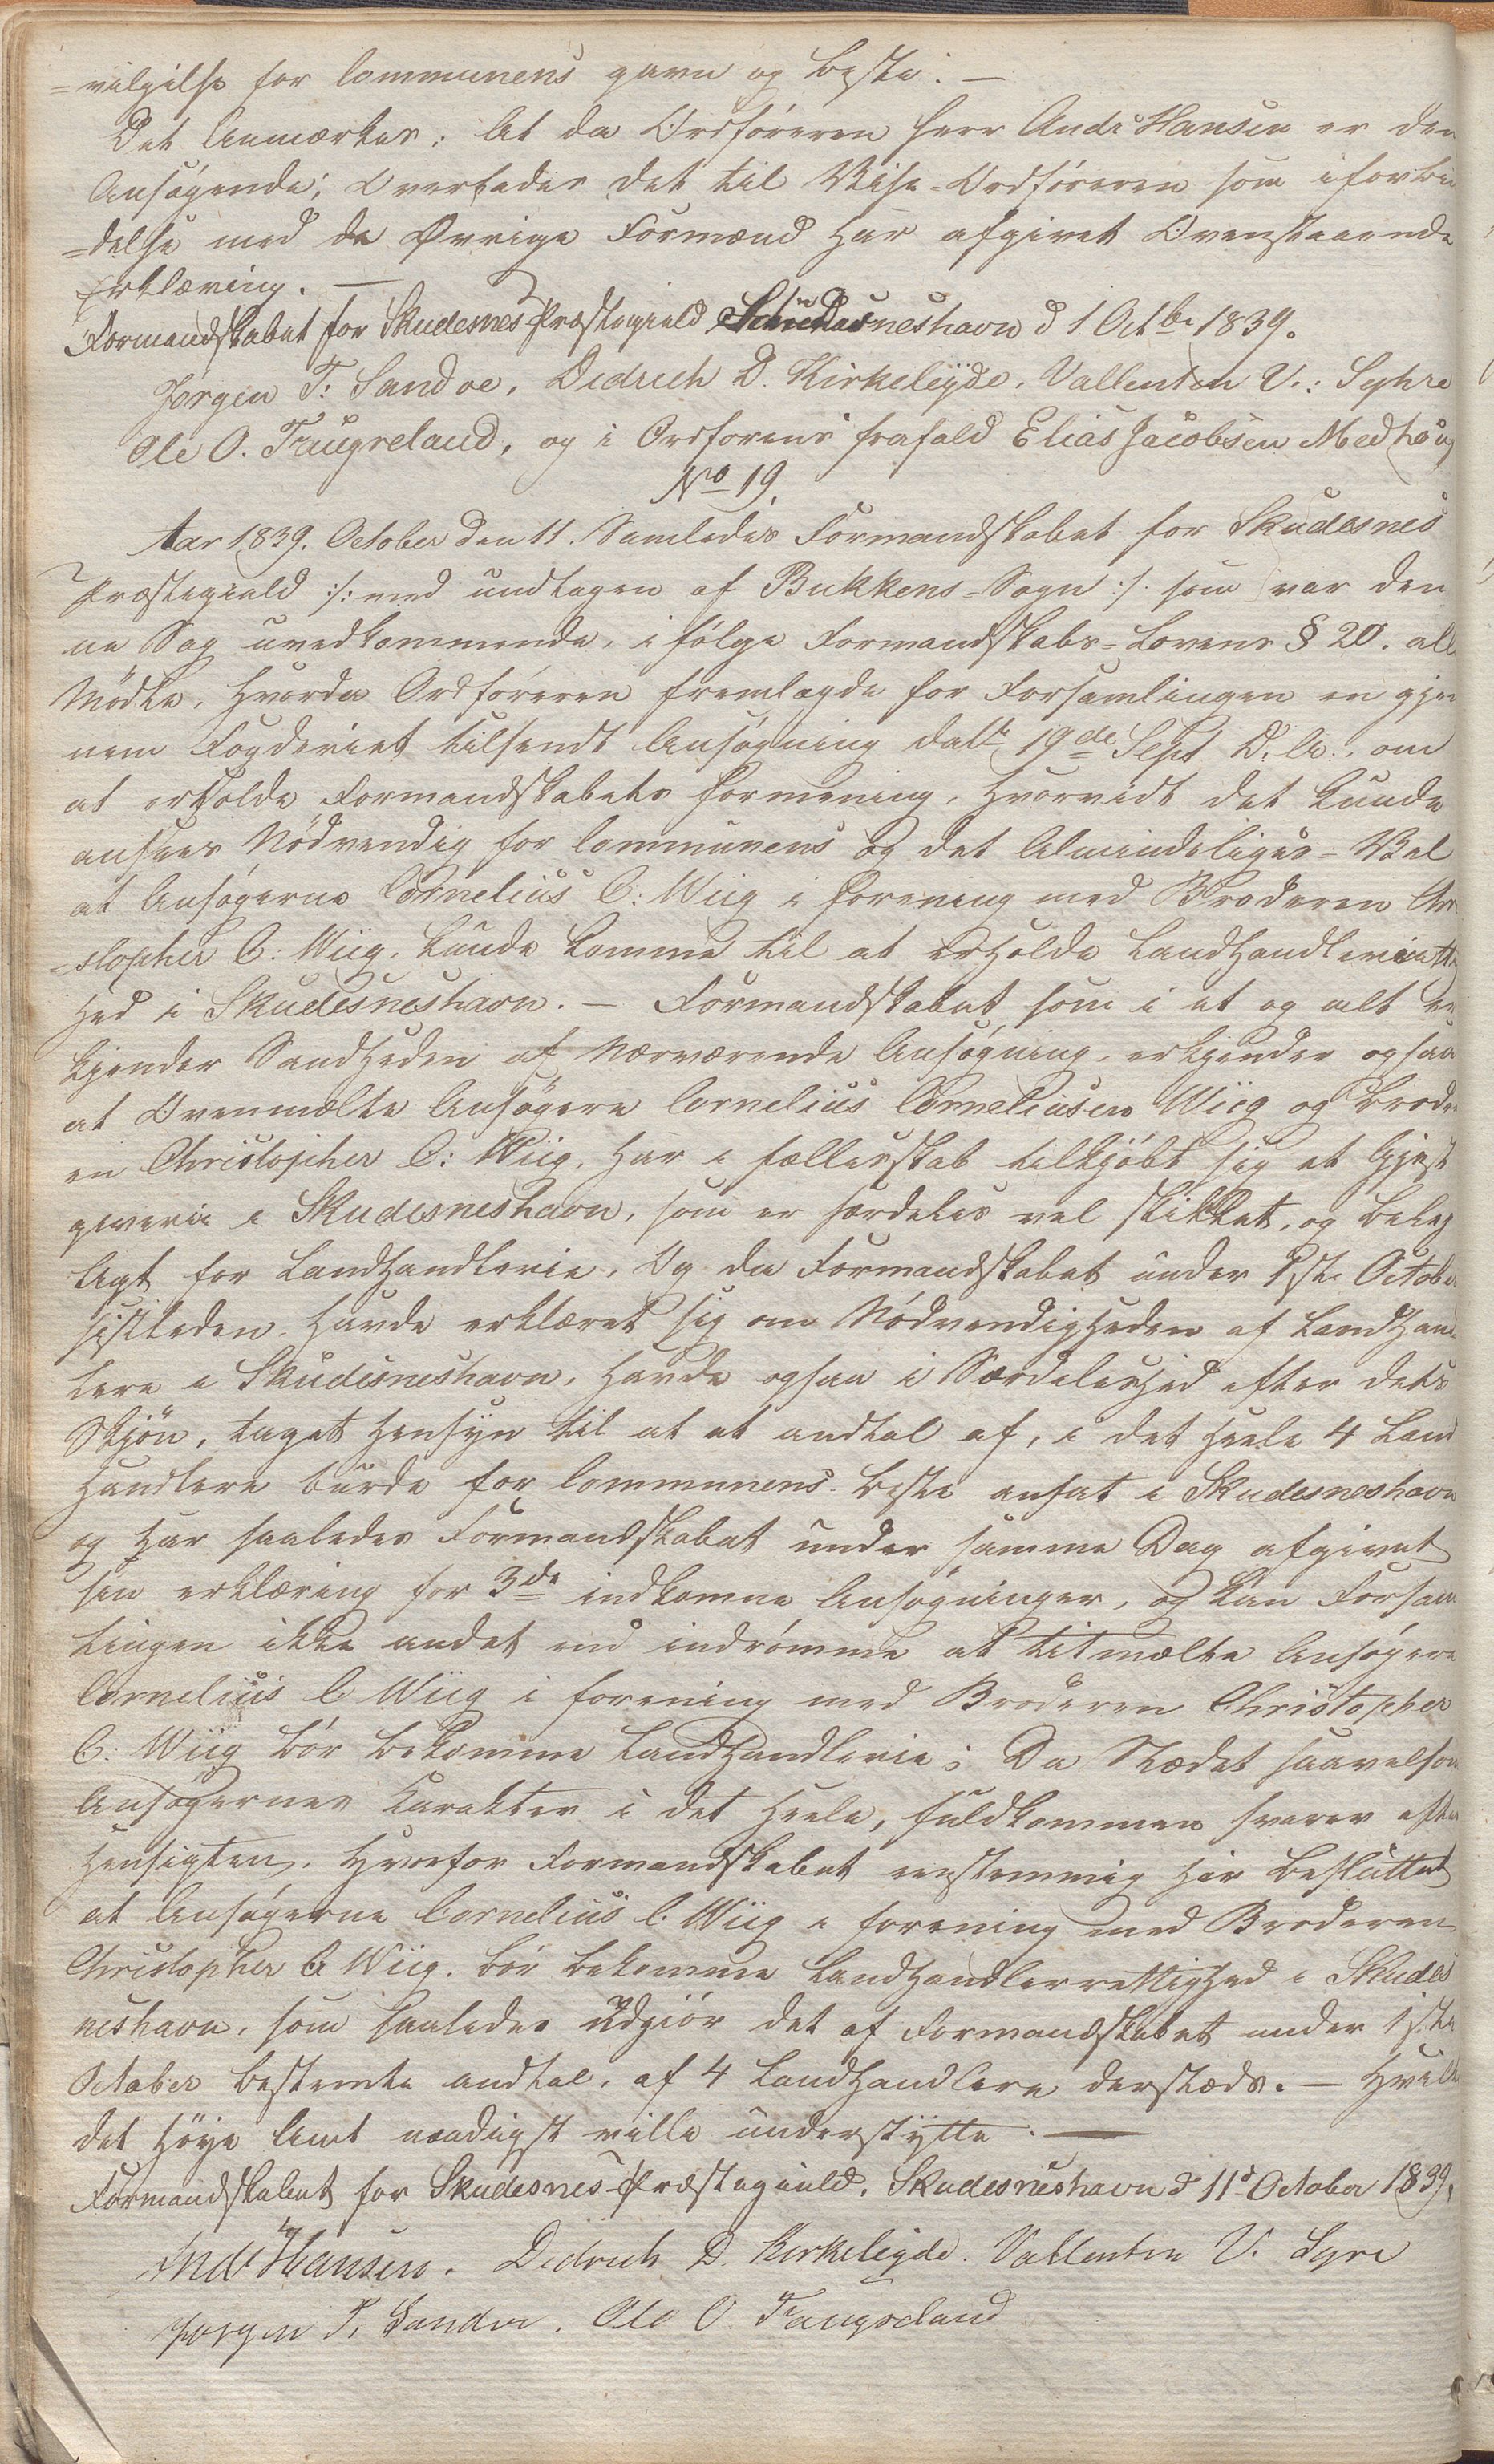 =vilgelse for Communens gavn og beste. —
Det Anmærkes: At da Ordføreren Herr Andr Hansen er den
Ansøgende; Overlades det til Vise-Ordføreren som i forbin
=delse med de Øvrige Formænd har afgivet Ovenstaaende
Erklæring. —
Formandskabet for Skudesnes Præstegield Skudesneshavn d 1 Octbr 1839.
Jørgen T: Sandoe, Didrich D. Kirkeleyde, Vallentin V.: Syhre
Ole O. Trugreland, og i Ordførens frafald Elias Jacobsen Medhoug
No 19.
Aar 1839. October den 11. Samledes Formandskabet for Skudesnes
Præstegield :/: med undtagen af Bukkens-Sogn :/: som var den
ne Sag uvedkommende, i følge Formandskabs-Lovens § 20. alle
Mødte, Hvorda Ordføreren fremlagde for Forsamlingen en gjen
nem Fogderiet tilsendt Ansøgning datt 19de Sept D. A., om
at erholde Formandskabets formening, Hvorvidt det kunde
ansees Nødvendig for Communens og det Almindeliges-Vel
at Ansøgerne Cornelius C: Wiig i forening med Broderen Chri
=stopher C: Wiig, kunde komme til at erholde Landhandlerirettig
hed i Skudesneshavn. — Formandskabet som i et og alt er
kjender Sandheden af Nærværende Ansøgning, erkjender ogsaa
at Ovenmelte Ansøgere Cornelius Corneliusen Wiig og Broder
en Christopher C: Wiig, har i fællesskab tilkjøbt sig et Gjest
giverie i Skudesneshavn, som er særdeles vel skikket, og beleg
ligt for Landhandlerie, Og da Formandskabet under 1ste October
sistleden, havde erklæret sig om Nødvendigheden af Landhand
lere i Skudesneshavn, havde ogsaa i Særdeleshed efter dets
Skjøn, taget Hensyn til at et andtal af, i det Heele 4 Land
Handlere burde for Communens beste ansat i Skudesneshavn
og har saaledes Formandskabet under samme Dag afgivet
sin erklæring for 3de indkomne Ansøgninger, og kan Forsam
lingen ikke andet end indrømme at titmelte Ansøgere
Cornelius C Wiig i forening med Broderen Christopher
C: Wiig bør bekomme Landhandlerie; Da Stædet saavelsom
Ansøgernes Karakter i det Heele, fuldkommen svarer efter
Hensigten. Hvorfor Formandskabet eenstemmig har besluttet
at Ansøgerne Cornelius C. Wiig i forening med Broderen
Christopher C Wiig. bør bekomme Landhandlerrettighed i Skudes
neshavn, som saaledes Udgiør det af Formandskabet under 1ste
October bestemte andtal, af 4 Landhandlere dersteds. — Hvilket
det Høye Amt naadigst ville understytte. —
Formandskabet for Skudesnes-Præstegield. Skudesneshavn d 11te October 1839.
Andr Hansen. Didrich D. Kirkeleyde. Vallentin V. Syre
Jørgen T. Sandve. Ole O. Traugreland